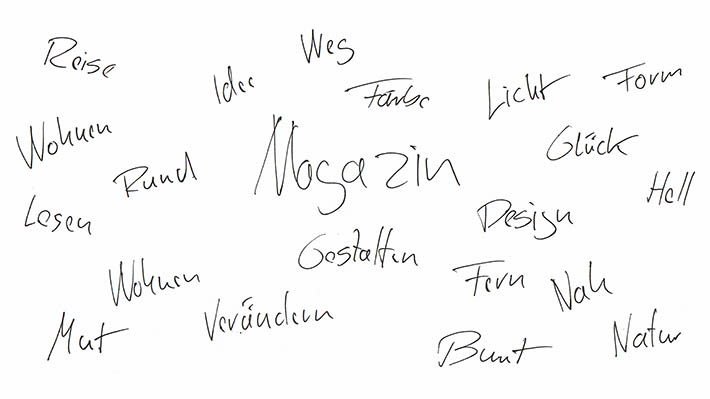 Reise
Idee
Weg
Farbe
Licht
Form
Wohnen
Rund
Magazin
Glück
Hell
Lesen
Gestalten
Design
Wohnen
Fern
Nah
Mut
Verändern
Bunt
Natur